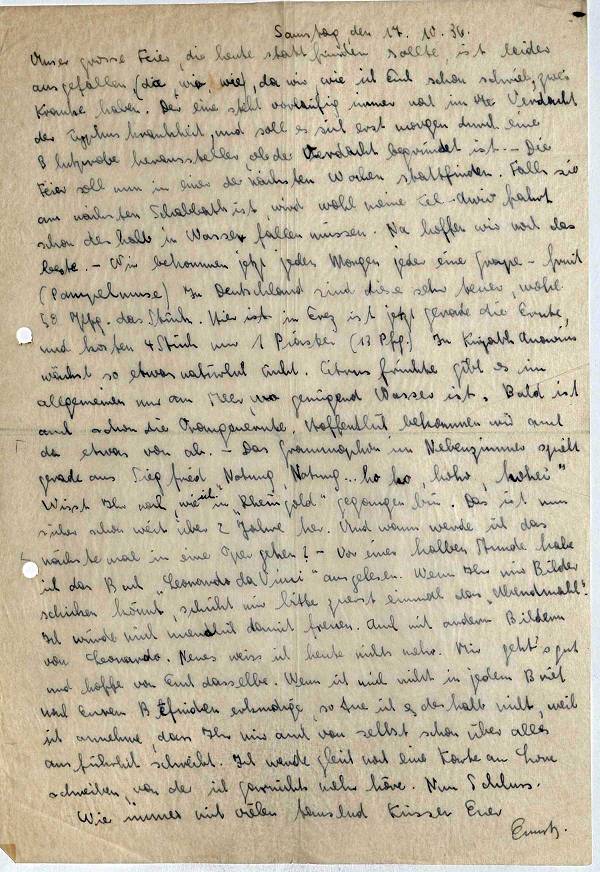 Samstag den 17. 10. 36.
Unser grosse Feier, die heute stattfinden sollte, ist leider
ausgefallen, da wir wie ich Euch schon schrieb, zwei
Kranke haben. Der eine steht vorläufig immer noch im Verdacht
der Typhuskrankheit, und soll es sich erst morgen durch eine
Blutprobe herausstellen, ob der Verdacht begründet ist. – Die
Feier soll nun in einer der nächsten Wochen stattfinden. Falls sie
am nächsten Schabbath ist, wird wohl meine Tel-Aviv fahrt
schon deshalb in Wasser fallen müssen. Na hoffen wir noch das
beste. – Wir bekommen jetzt jeden Morgen jeder eine Grape-fruit
(Pampelmuse) In Deutschland sind diese sehr teuer, wohl
50 Pfg. das Stück. Hier ist in Erez ist jetzt gerade die Ernte,
und kosten 4 Stück nur 1 Piaster (13 Pfg.) In Kirjath Anavim
wächst so etwas natürlich nicht. Citrusfrüchte gibt es im
allgemeinen nur am Meer, wo genügend Wasser ist. Bald ist
auch schon die Orangenernte. Hoffentlich bekommen wir auch
da etwas von ab. – Das Grammophon im Nebenzimmer spielt
gerade aus Siegfried „Notung, Notung... ho ho, hoho, hohei"
Wisst Ihr noch, wie ich in „Rheingold" gegangen bin. Das ist nun
sicher schon weit über 2 Jahre her. Und wann werde ich das
nächste mal in eine Oper gehen? – Vor einer halben Stunde habe
ich das Buch „Leonardo da Vinci" ausgelesen. Wenn Ihr mir Bilder
schicken könnt, schickt mir bitte zuerst einmal das „Abendmahl".
Ich würde mich unendlich damit freuen. Auch mit andern Bildern
von Leonardo. Neues weiss ich heute nichts mehr. Mir geht's gut
und hoffe von Euch dasselbe. Wenn ich mich nicht in jedem Brief
nach Eurem Befinden erkundige, so tue ich es deshalb nicht, weil
ich annehme, dass Ihr mir auch von selbst schon über alles
ausführlich schreibt. Ich werde gleich noch eine Karte an
schreiben, von der ich garnichts mehr höre. Nun Schluss.
Wie immer mit vielen tausend Küssen Euer
Ernst.